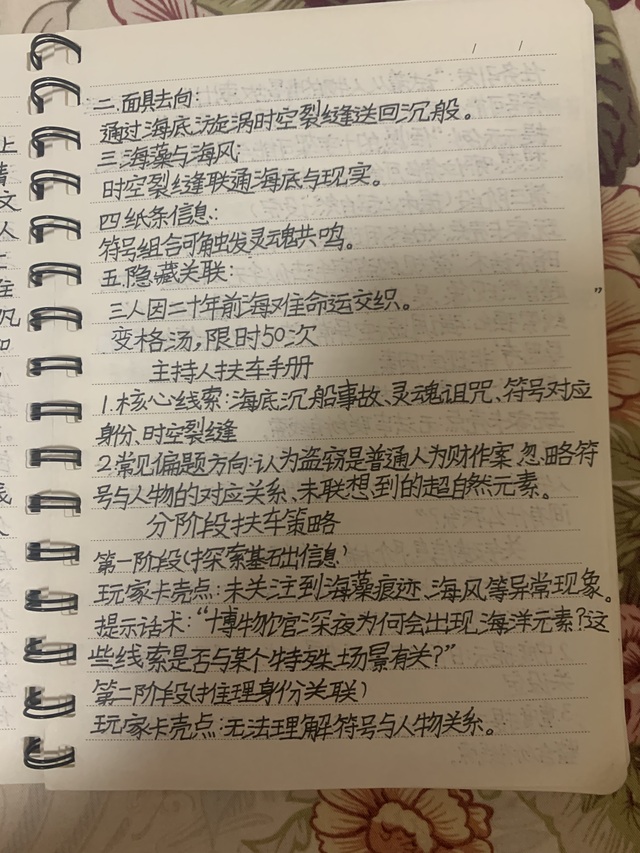 二.面具去向:
通过海底漩涡时空裂缝送回沉般。
三.海藻与海风:
时空裂缝联通海底与现实。
四.纸条信息:
符号组合可触发灵魂共鸣。
五.隐藏关联:
三人因二十年前海难命运交织。
变格汤,限时50次
主持人扶车手册
1.核心线索:海底沉船事故、灵魂诅咒、符号对应
身份、时空裂缝
2.常见偏题方向:认为盗窃是普通人为财作案,忽略符
号与人物的对应关系、未联想到的超自然元素。
分阶段扶车策略
第一阶段(探索基础信息)
玩家卡壳点:未关注到海藻痕迹、海风等异常现象。
提示话术:“博物馆深夜为何会出现海洋元素?这
些线索是否与某个特殊场景有关?”
第二阶段(推理身份关联)
玩家卡壳点:无法理解符号与人物关系。